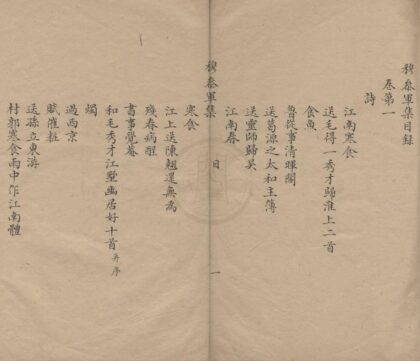 穆參軍集目錄
卷第一
詩
江南寒食
送毛得一秀才歸淮上二首
食魚
魯從事清暉閣
送葛源之太和主簿
送靈師歸吳
江南春
穆參軍集 目 一
寒食
江上送陳翹還無爲
殘春病酲
書事覺菴
和毛秀才江墅幽居好十首并序
燭
過西京
賦催粧
送孫立東游
村郭寒食雨中作江南體